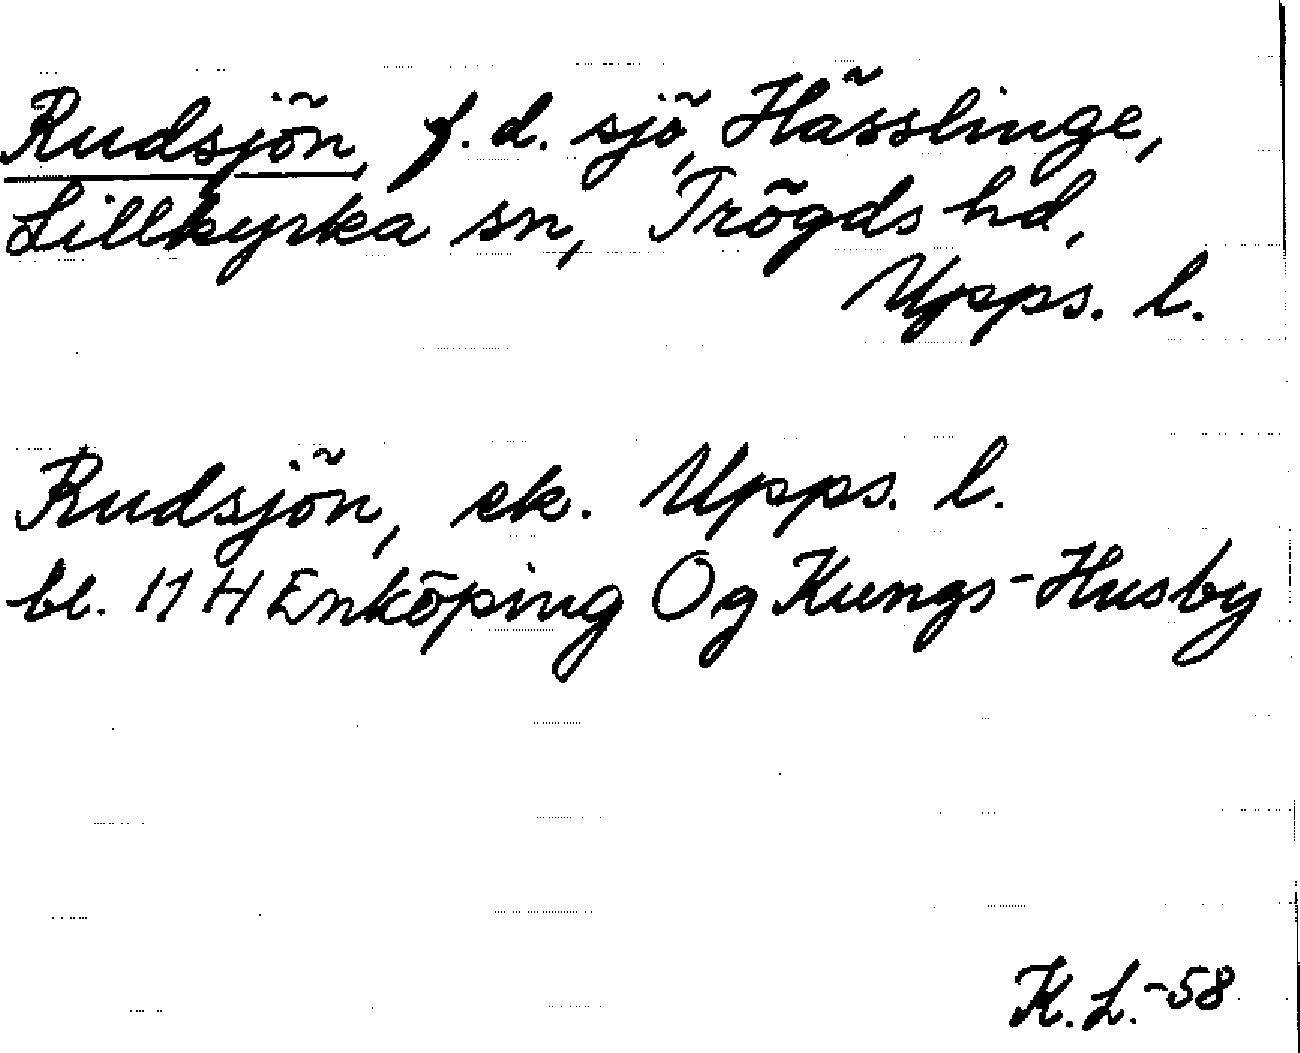 Rudsjön, f.d. sjö, Hässlinge,
Lillkyrka sn, Trögds hd,
Upps. l.
Rudsjön, ek. Upps. l.
bl. 11 H Enköping Og Kungs-Husby
K.L.-58